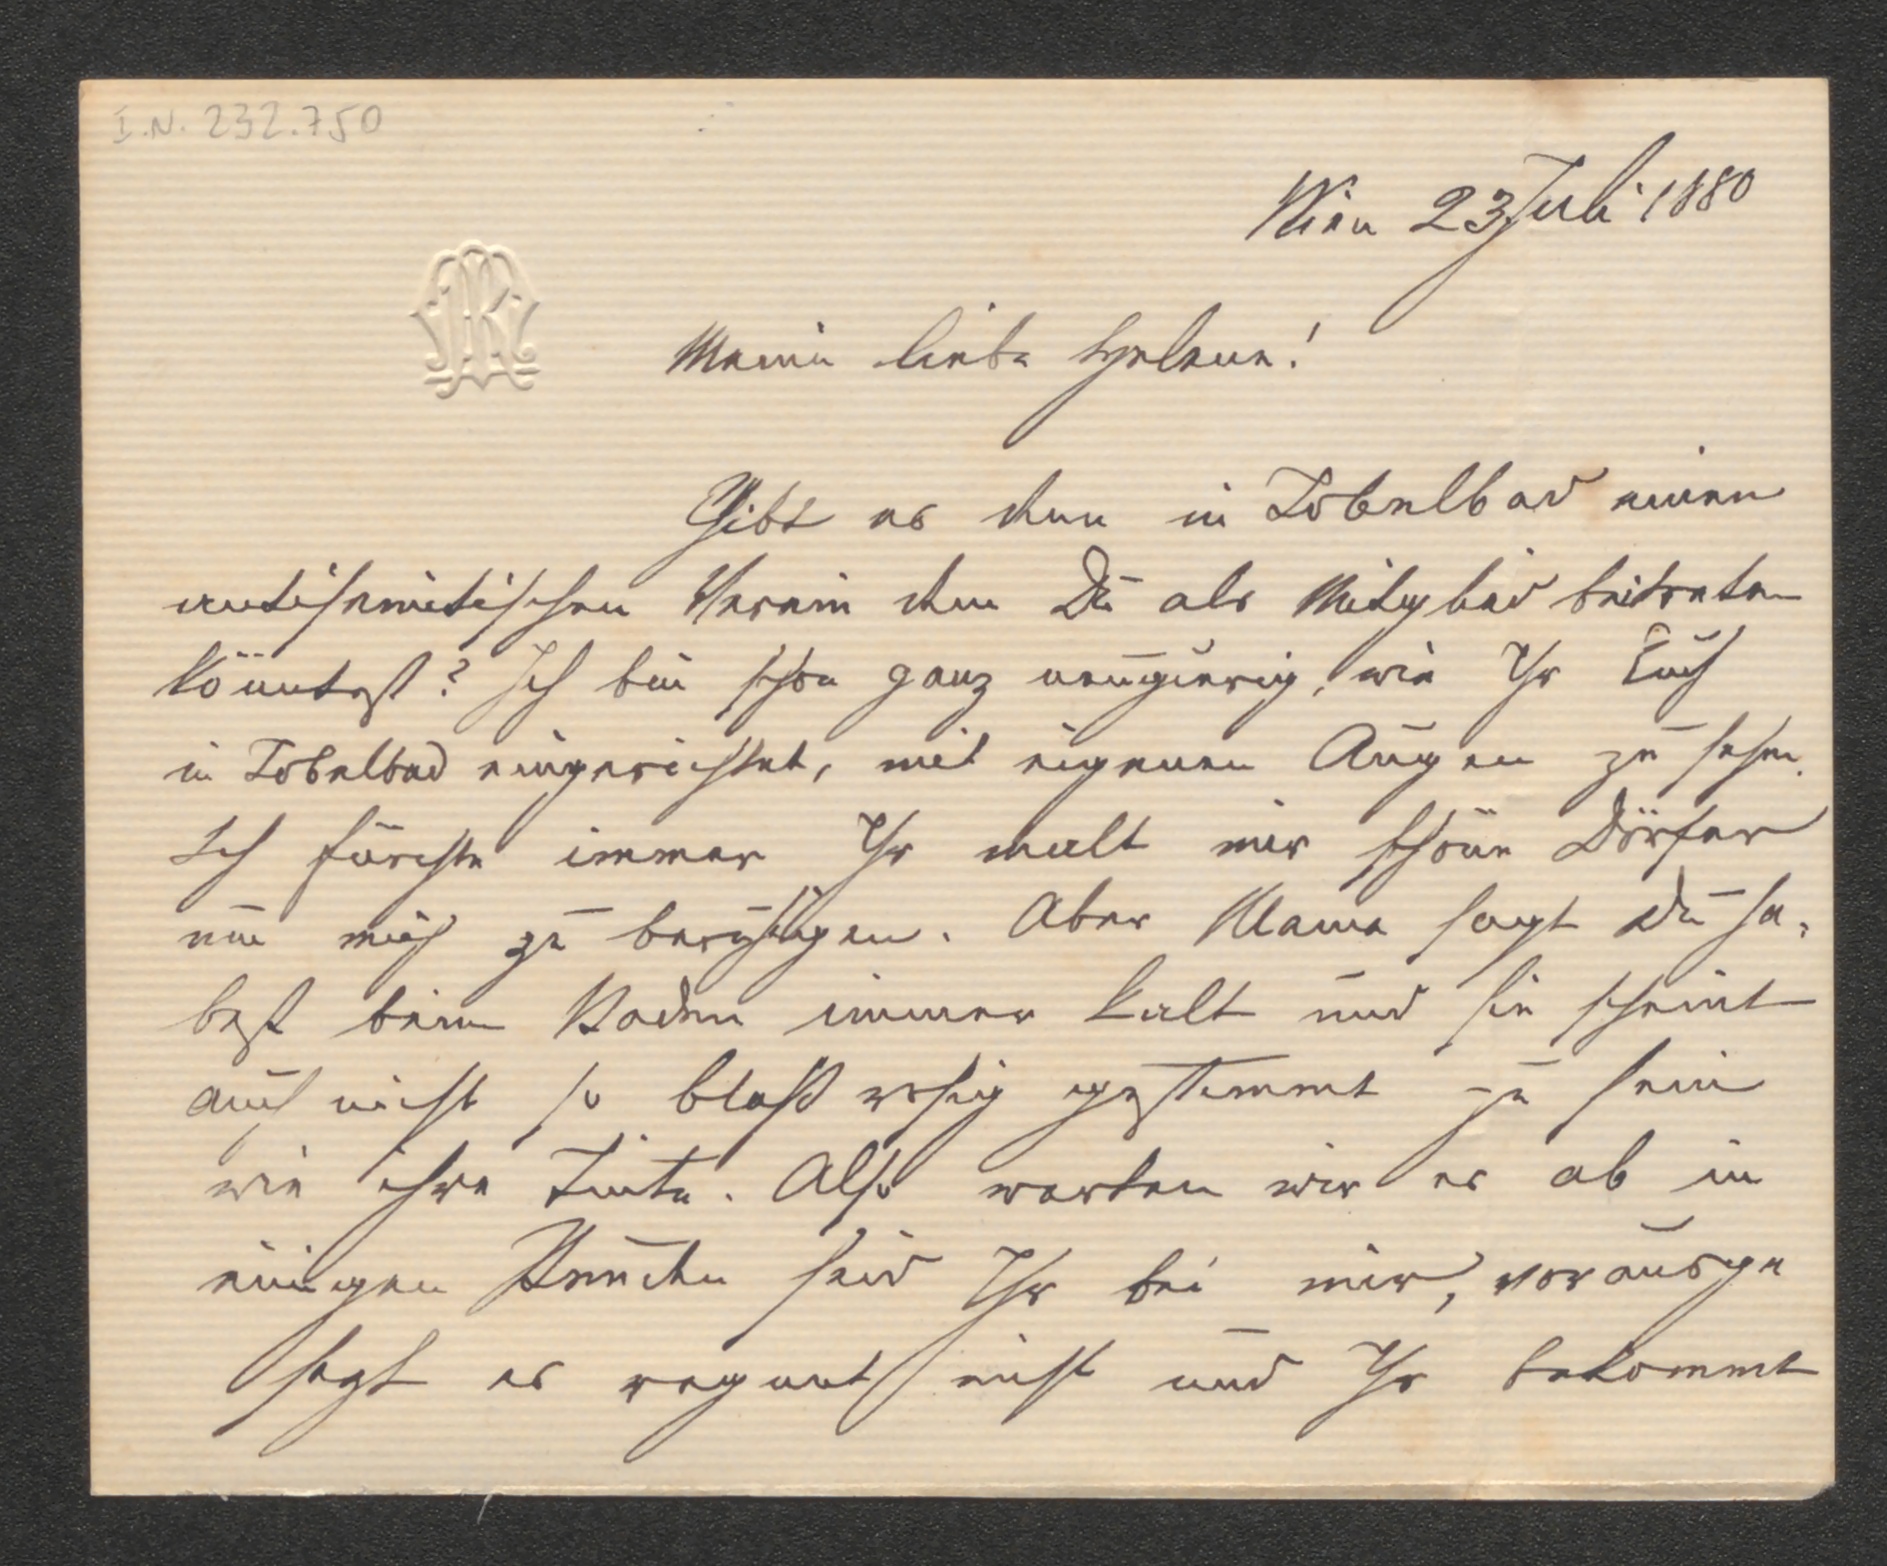 I.N. 232.750
Wien 23 Juli 1880
Meine liebe Helene!
Gibt es denn in Tobelbad einen
antisemitischen Verein dem Du als Mitglied beitreten
könntest? Ich bin schon ganz neugierig, wie Ihr Euch
in Tobelbad eingerichtet, mit eigenen Augen zu sehen.
Ich fürchte immer Ihr malt mir schöne Dörfer
um mich zu beruhigen. Aber Mama sagt Du ha-
best beim Baden immer kalt und sie scheint
auch nicht so blaß rosig gestimmt zu sein
wie ihre Tinte. Also warten wir es ab in
einigen Stunden seid Ihr bei mir, vorausge
setzt es regnet nicht und Ihr bekommt